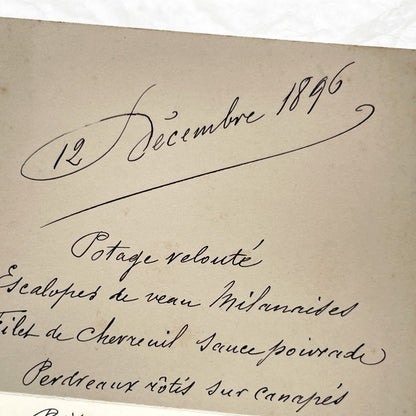 12 Décembre 1896
Potage velouté
Escalopes de veau Milanaises
Filet de Chevreuil sauce poivrade
Perdreaux rôtis sur canapés